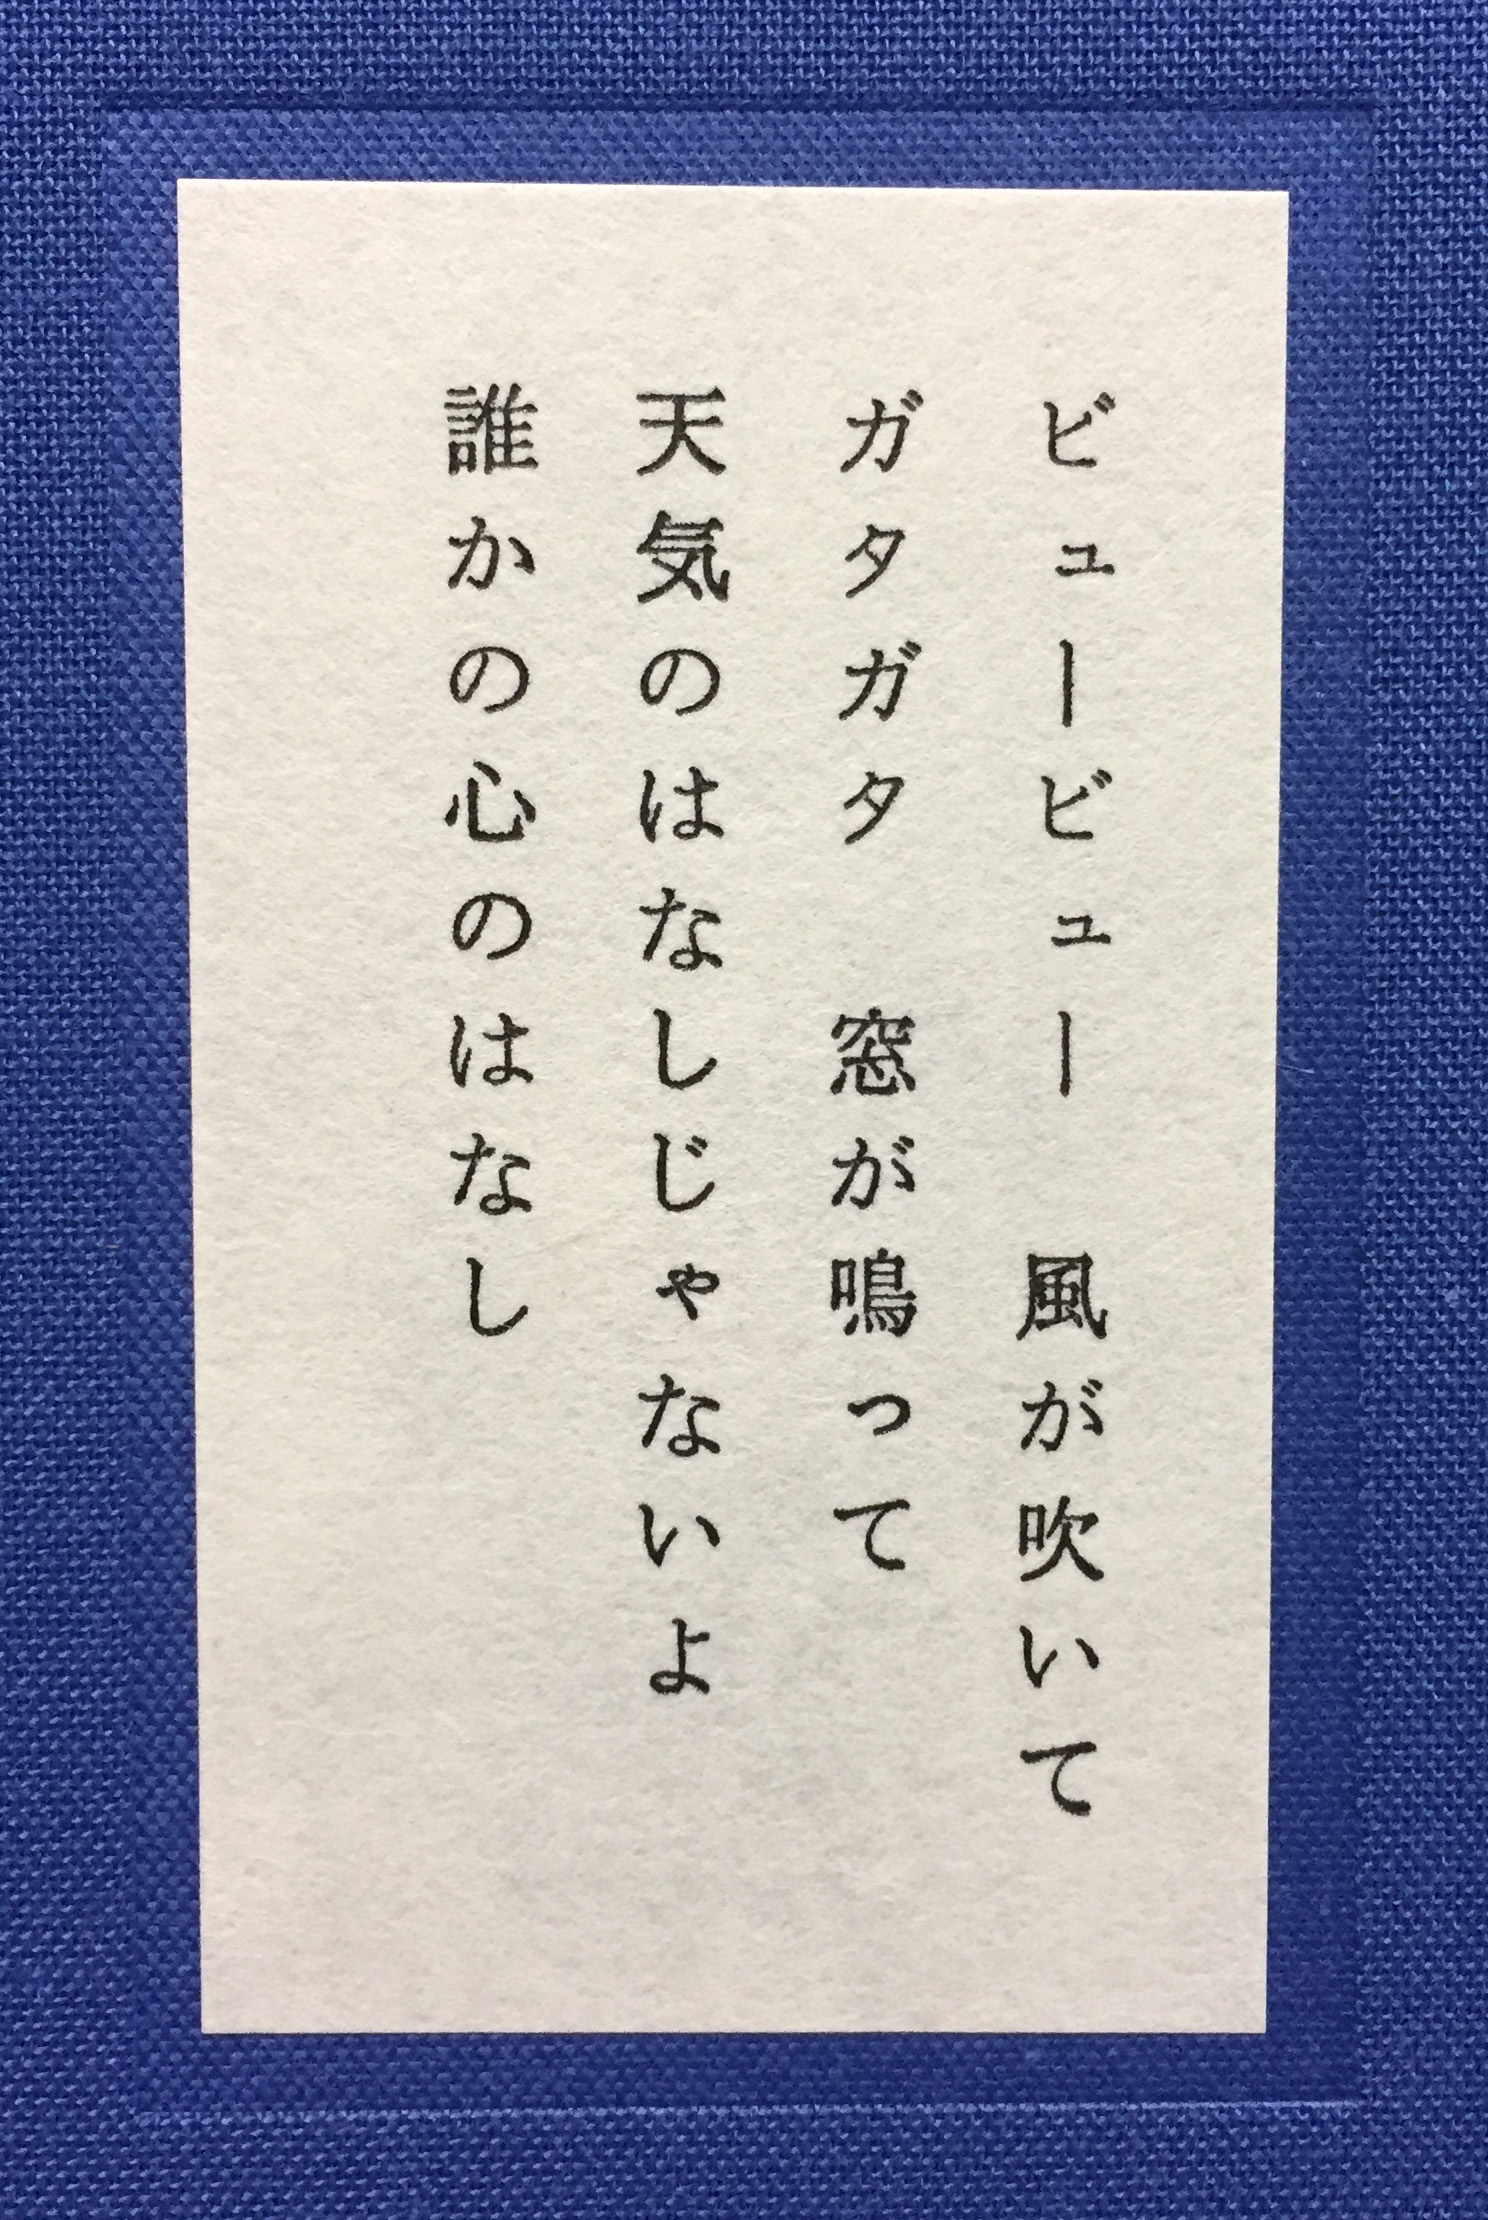 ビュービュー　風が吹いて
ガタガタ　窓が鳴って
天気のはなしじゃないよ
誰かの心のはなし